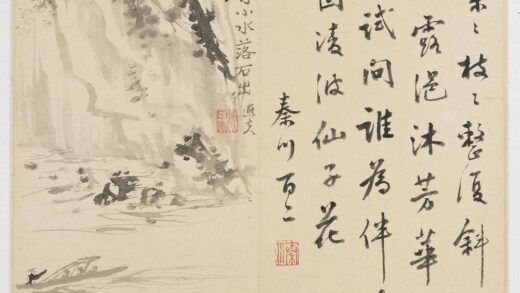 〻枝〻整復斜
露浥沐芳華
試问誰為伴
凌波仙子花
秦川百二
小水落石出